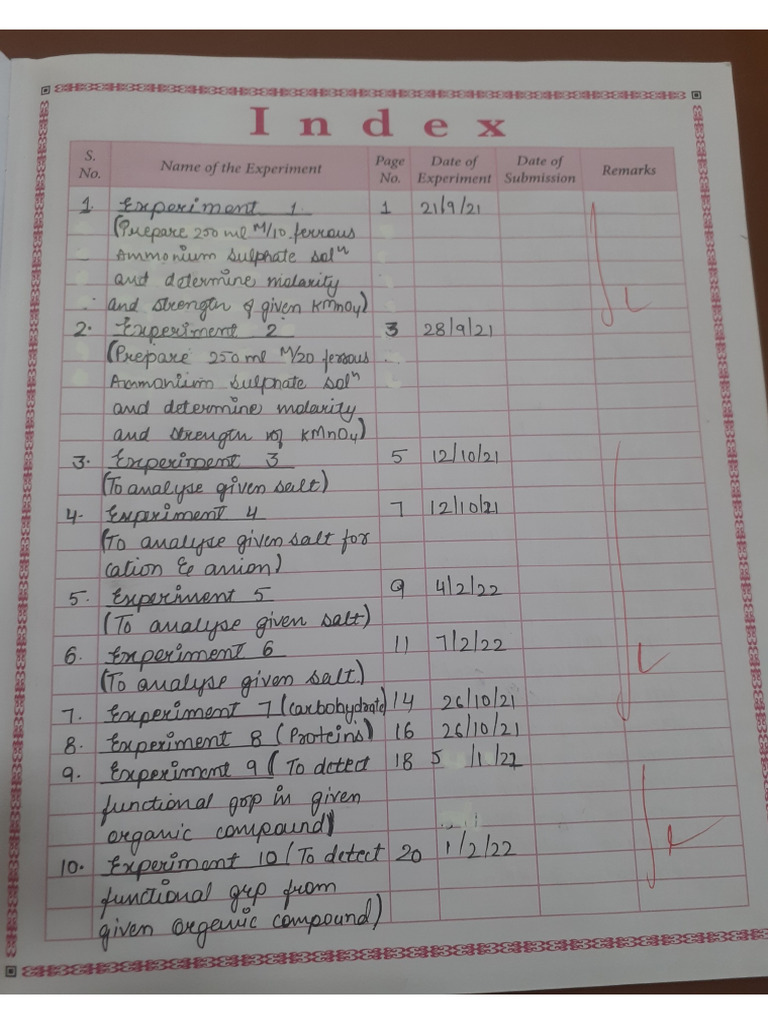 Index
S. No. Name of the Experiment Page No. Date of Experiment Date of Submission Remarks
1. Experiment 1. 1 21/9/21
(Prepare 250 ml M/10 ferrous
Ammonium sulphate solⁿ
and determine molarity
and strength of given KMnO4)
2. Experiment 2 3 28/9/21
(Prepare 250 ml M/20 ferrous
Ammonium sulphate solⁿ
and determine molarity
and strength of KMnO4)
3. Experiment 3 5 12/10/21
(To analyse given salt)
4. Experiment 4 7 12/10/21
(To analyse given salt for
cation & anion)
5. Experiment 5 9 4/2/22
(To analyse given salt)
6. Experiment 6 11 7/2/22
(To analyse given salt.)
7. Experiment 7 (Carbohydrate) 14 26/10/21
8. Experiment 8 (Proteins) 16 26/10/21
9. Experiment 9 ( To detect 18 5 /1/22
functional grp in given
organic compound)
10. Experiment 10 (To detect 20 1/2/22
functional grp from
given organic compound)